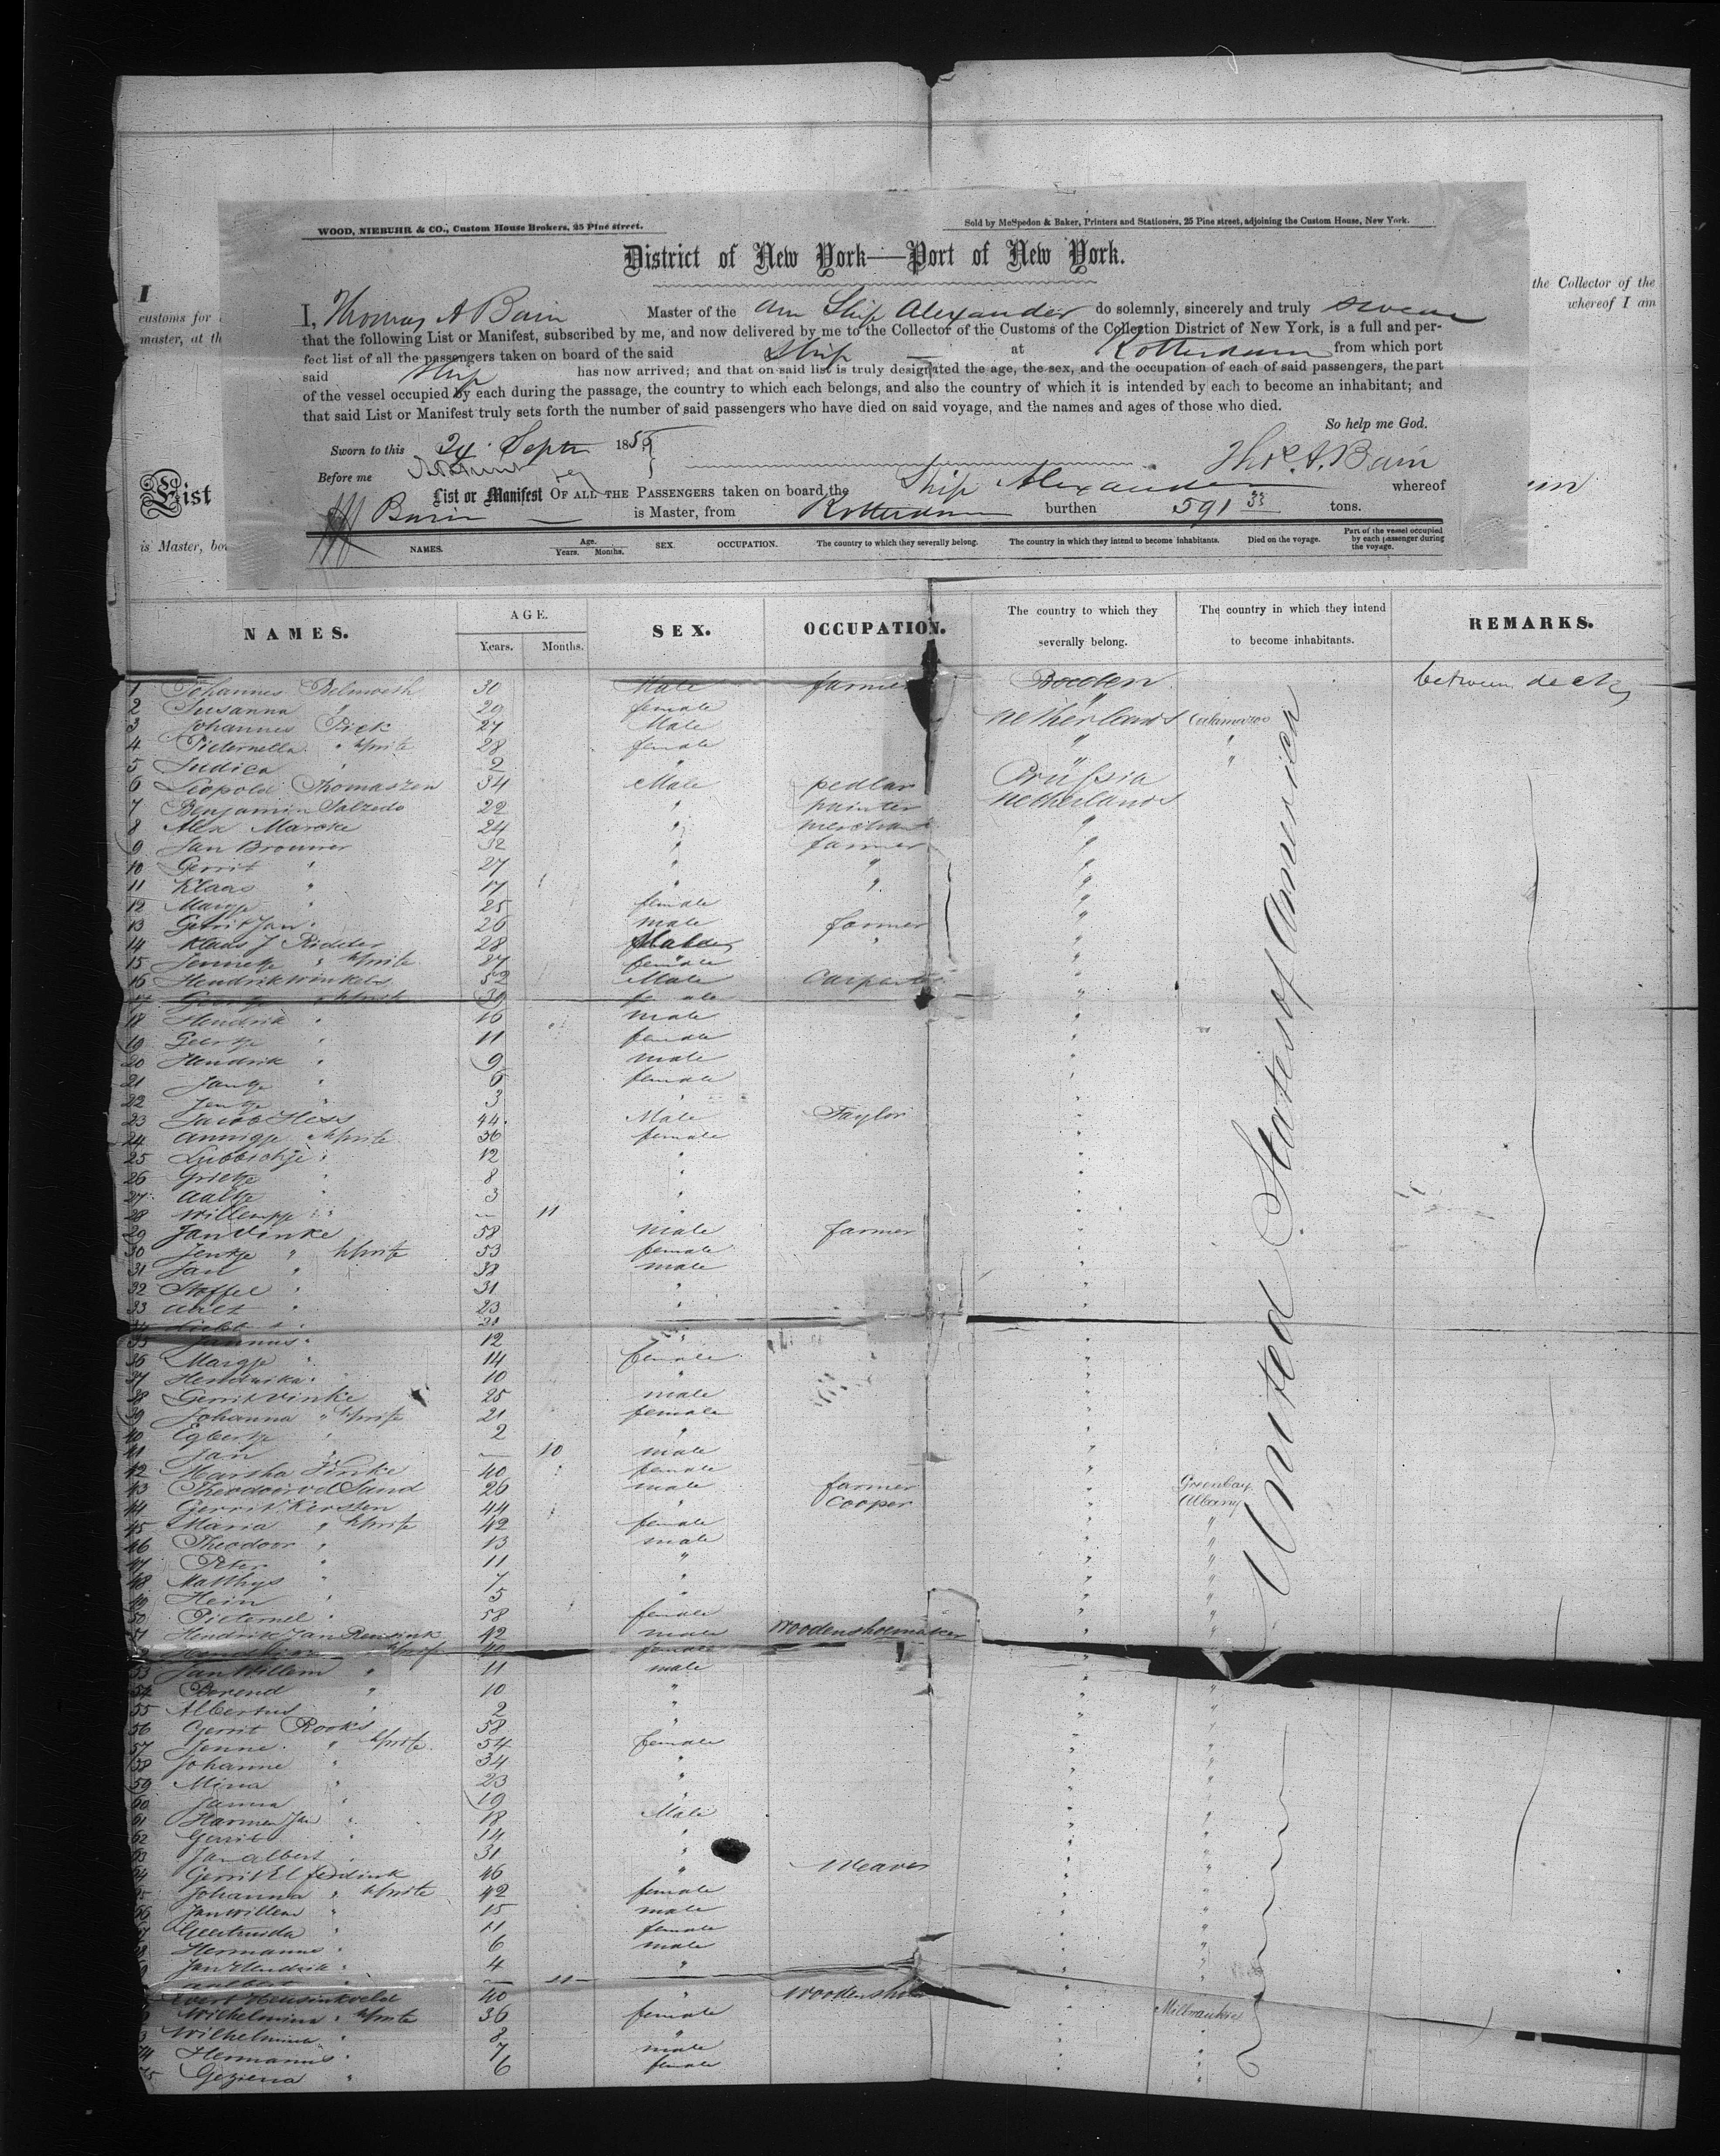 WOOD, NIEBUHR & CO., Custom House Brokers, 25 Pine street.
Sold by McSpedon & Baker, Printers and Stationers, 25 Pine street, adjoining the Custom House, New York.
District of New York—Port of New York.
I, Thomas A Bain Master of the Am Ship Alexander do solemnly, sincerely and truly swear
that the following List or Manifest, subscribed by me, and now delivered by me to the Collector of the Customs of the Collection District of New York, is a full and per-
fect list of all the passengers taken on board of the said Ship at Rotterdam from which port
said Ship has now arrived; and that on said list is truly designated the age, the sex, and the occupation of each of said passengers, the part
of the vessel occupied by each during the passage, the country to which each belongs, and also the country of which it is intended by each to become an inhabitant; and
that said List or Manifest truly sets forth the number of said passengers who have died on said voyage, and the names and ages of those who died.
So help me God.
Sworn to this 24 Septr 1855
Before me
Thos. A. Bain
List or Manifest OF ALL THE PASSENGERS taken on board the Ship Alexander whereof
Bain is Master, from Rotterdam burthen 591 33 tons.
NAMES. Age. Years. Months. SEX. OCCUPATION. The country to which they severally belong. The country in which they intend to become inhabitants. Died on the voyage. Part of the vessel occupied by each passenger during the voyage.
I
customs for
master, at th
the Collector of the
whereof I am
List
is Master, bo
NAMES. AGE. Years. Months. SEX. OCCUPATION. The country to which they severally belong. The country in which they intend to become inhabitants. REMARKS.
United States of America
1 Johannes 30 Male farmer Baden between decks
2 Susanna " 29 female "
3 Johannes Pick 27 Male Netherlands Calamazoo
4 Pieternella " 28 female " "
5 Judica " 2 " " "
6 Leopold Thomaszen 34 Male pedlar Prüssia
7 Benjamin Salzedo 22 " painter Netherlands
8 Alex Marcke 24 " merchant "
9 Jan Brouwer 32 " farmer "
10 Gerrit " 27 " " "
11 Klaas " 17 " " "
12 Margje " 25 female "
13 Gerrit Jan " 26 male farmer "
14 Klaas J Ridder 28 " "
15 Jennetje " 27 female "
16 Hendrik Winkels 52 Male Carpenter "
17 " 39 female "
18 Hendrik " 16 male "
19 Geertje " 11 female "
20 Hendrik " 9 male "
21 Jantje " 6 female "
22 Jentje " 3 " "
23 Jacob Hess 44 Male Taylor "
24 Annigje 36 female "
25 Lubbichje " 12 " "
26 Grietje " 8 " "
27 Aaltje " 3 " "
28 Willempje " — 11 " "
29 Jan Vinke 58 male farmer "
30 Jentje " 53 female "
31 Jan " 38 male "
32 Stoffel " 31 " "
33 Aalt " 23 "
34
35 " 12 " "
36 Margje " 14 female "
37 Hendrika " 10 " "
38 Gerrit Vinke 25 male "
39 Johanna " 21 female "
40 Egbertje " 2 " "
41 Jan " — 10 male "
42 Harsha Vinke 40 female "
43 Theodoor vd Sand 26 male farmer " Greenbay
44 Gerrit Kersten 44 " Cooper " Albany
45 Maria " 42 female " "
46 Theodoor " 13 male " "
47 Peter " 11 " " "
48 Matthys " 7 " " "
49 Hein " 5 " " "
50 Pieternel " 58 female " "
51 Hendrik Jan Rensink 42 male Woodenshoemaker " "
40 female
53 Jan Willem " 11 male "
54 Berend " 10 " " "
55 Albertus " 2 " " "
56 Gerrit Rooks 58 " " "
57 Jenne " 54 female " "
58 Johanne " 34 " " "
59 Mina " 23 " " "
60 Janna " 19 " " "
61 Harmen Jan " 18 Male " "
62 Gerrit " 14 " " "
63 Jan Albert " 31 " " "
64 Gerrit Elferdink 46 " Weaver " "
65 Johanna " 42 female " "
66 Jan Willem " 15 male " "
Geertruida " 11 female " "
Hermannus " 6 male " "
Jan Hendrik " 4 " " "
" — 11 "
Evert Heusinkveld 40 " Woodensho
Wilhelmina " 36 female " Milwaukie
Wilhelmina " 8 " " "
74 Hermannus " 7 male " "
75 Geziena " 6 female " "